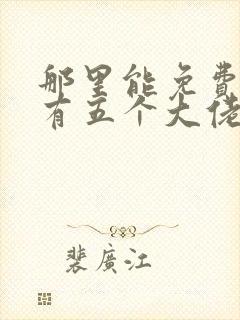 那里能免費
有五个大佬
裴廣江